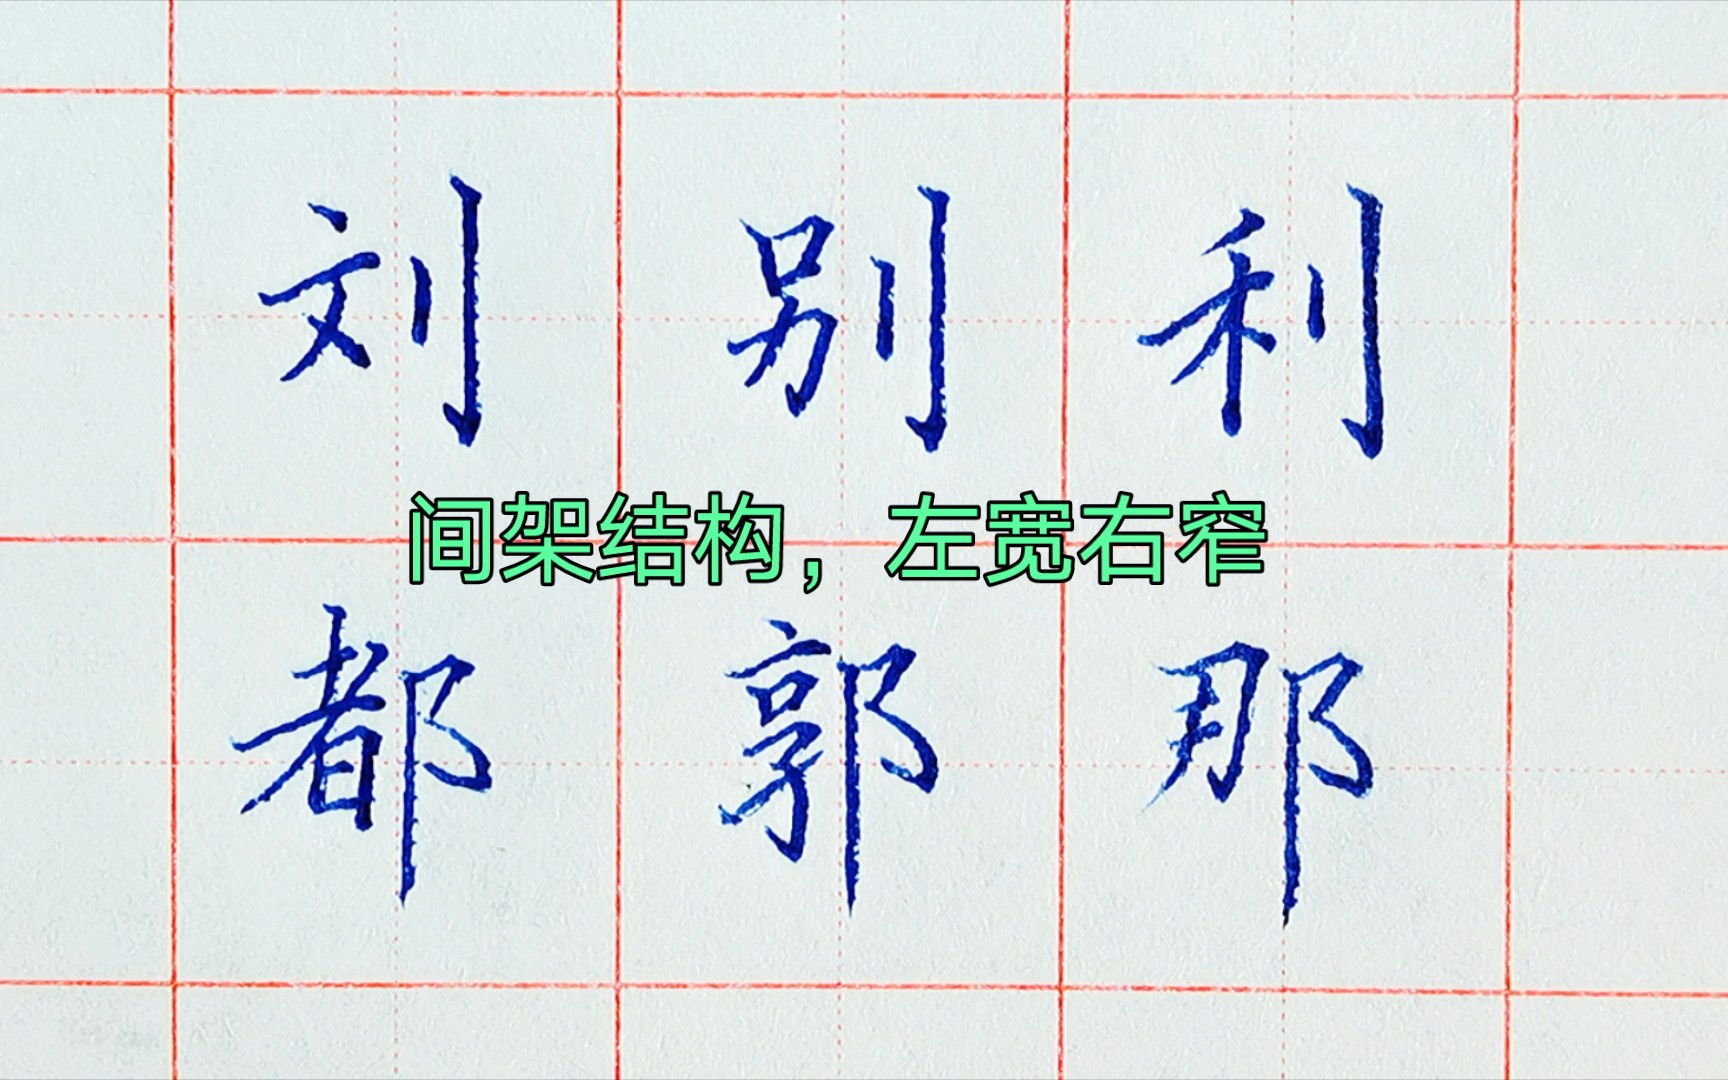 刘别利
间架结构，左宽右窄
都郭那